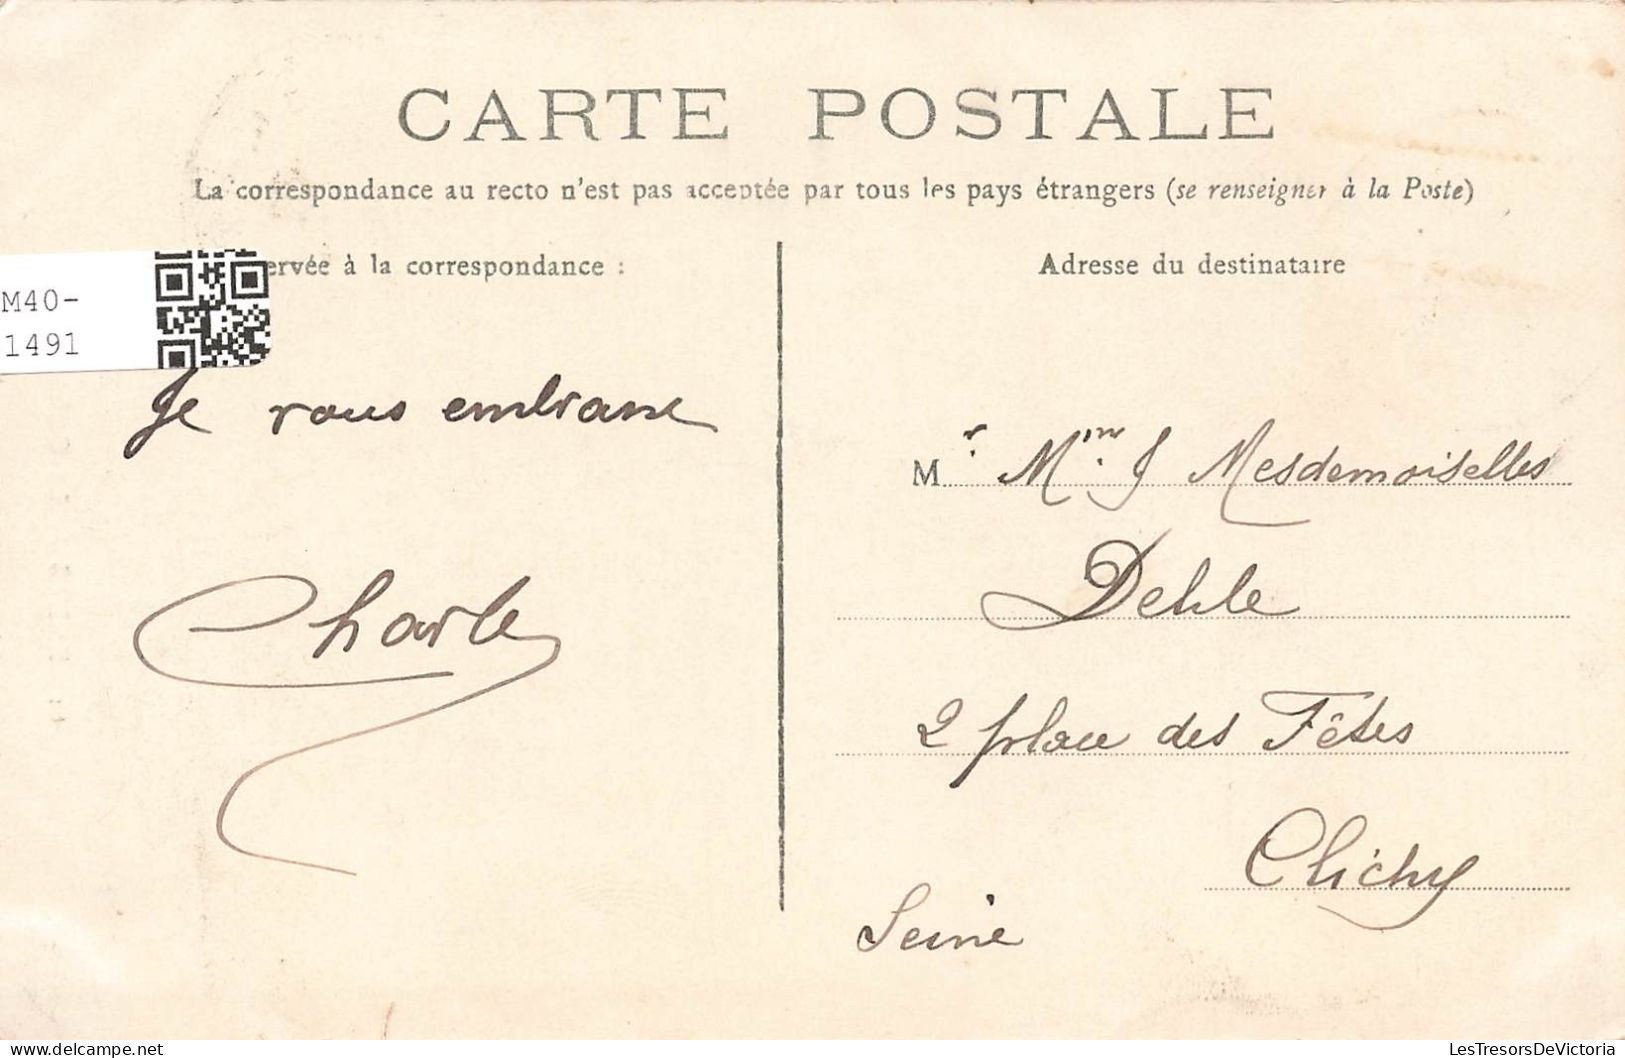 CARTE POSTALE
La correspondance au recto n'est pas acceptée par tous les pays étrangers (se renseigner à la Poste)
ervée à la correspondance :
Adresse du destinataire
M40-
1491
Je vous embrasse
Charle
M r. Mme. & Mesdemoiselles
2 place des Fêtes
Clichy
Seine
www.delcampe.net
LesTresorsDeVictoria